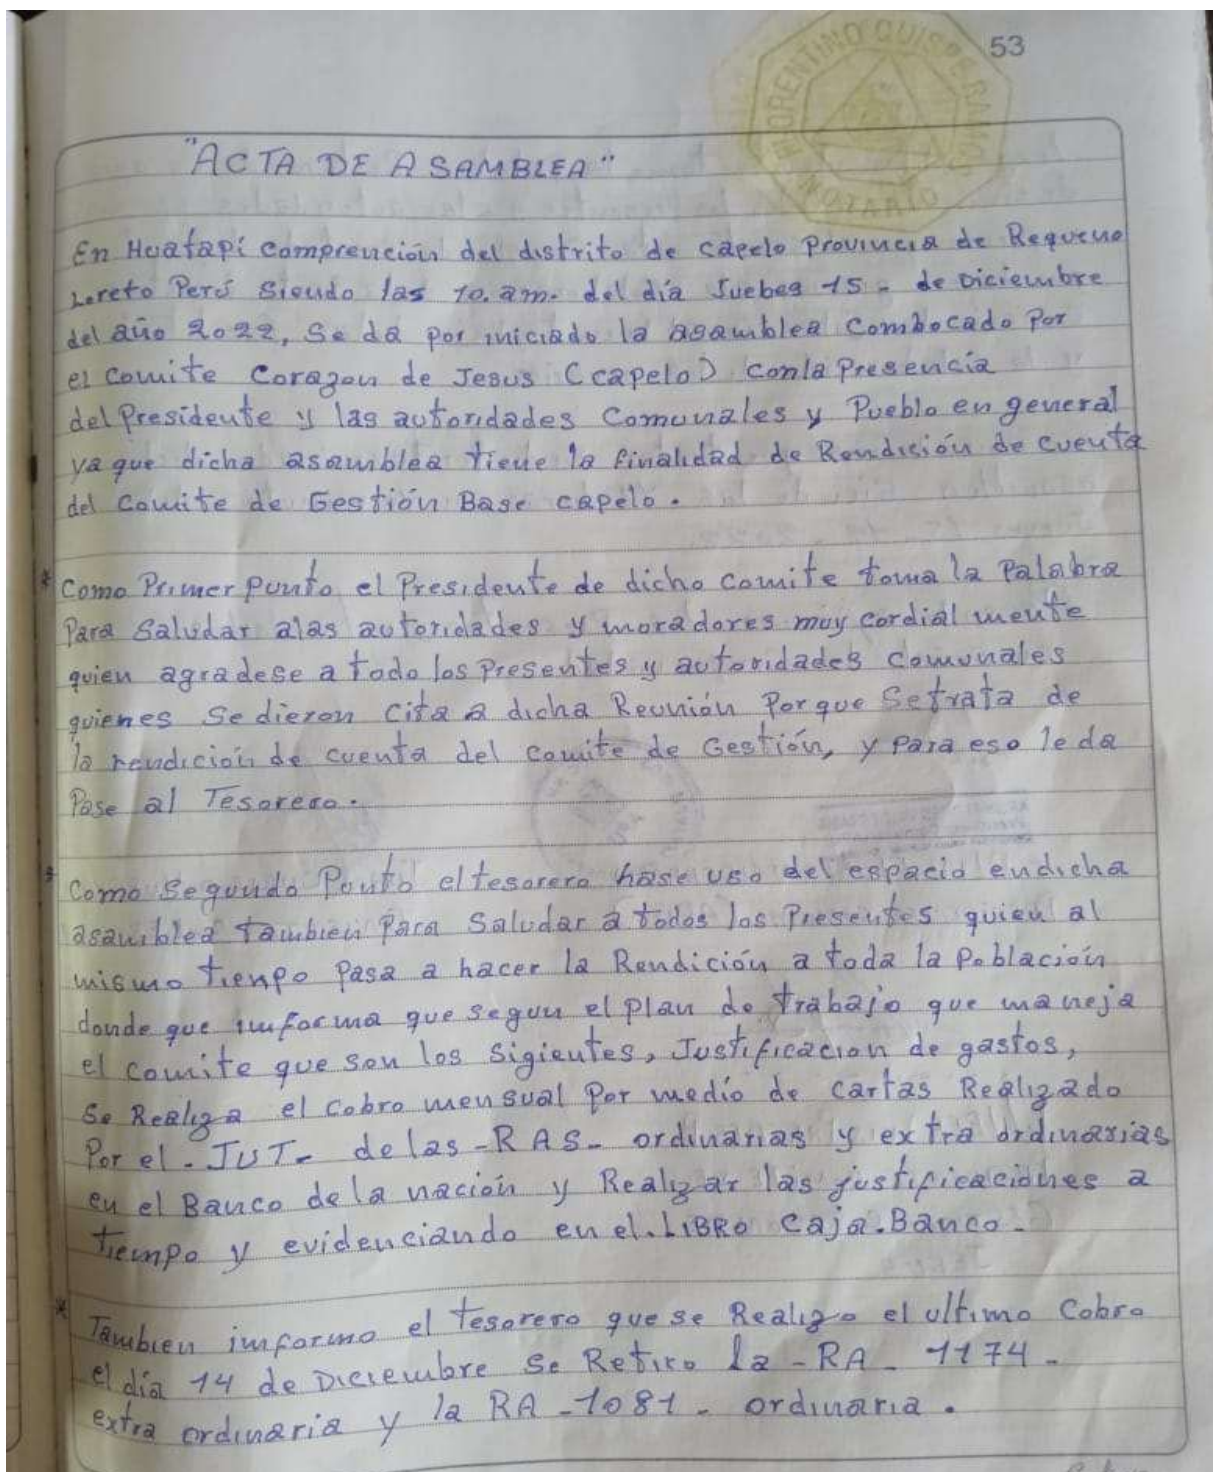 53
FLORENTINO QUISPE RAMOS
NOTARIO
"ACTA DE ASAMBLEA"
En Huatapi comprención del distrito de capelo Provincia de Requena
Loreto Perú siendo las 10.am. del día Juebes 15- de Diciembre
del año 2022, Se da por iniciado la asamblea Combocado Por
el comite Corazon de Jesus (capelo) conla Presencia
del Presidente y las autoridades Comunales y Pueblo en general
ya que dicha asamblea tiene la finalidad de Rendisión de cuenta
del Comite de Gestión Base capelo.
* Como Primer punto el Presidente de dicho comite toma la Palabra
Para Saludar alas autoridades y moradores muy cordial mente
quien agradese a todo los Presentes y autoridades comunales
quienes Se dieron cita a dicha Reunión Porque Setrata de
la rendición de cuenta del comite de Gestión, y Para eso le da
Pase al Tesorero.
* Como Segundo Punto eltesorero hase uso del espacio endicha
asamblea tambien Para Saludar a todos los Presentes quien al
mismo tienpo Pasa a hacer la Rendición a toda la Población
donde que imforma que segun el plan de trabajo que maneja
el comite que son los sigientes, Justificacion de gastos,
Se Realiza el cobro mensual Por medio de cartas Realizado
Por el - JUT- de las -RAS- ordinarias y extra ordinarias
en el Banco dela nación y Realizar las justificaciones a
tiempo y evidenciando en el. LIBRO caja.Banco-
* Tambien imformo el tesorero que se Realizo el ultimo Cobro
el día 14 de Diciembre Se Retiro la -RA- 1174-
extra ordinaria y la RA -1081- ordinaria.